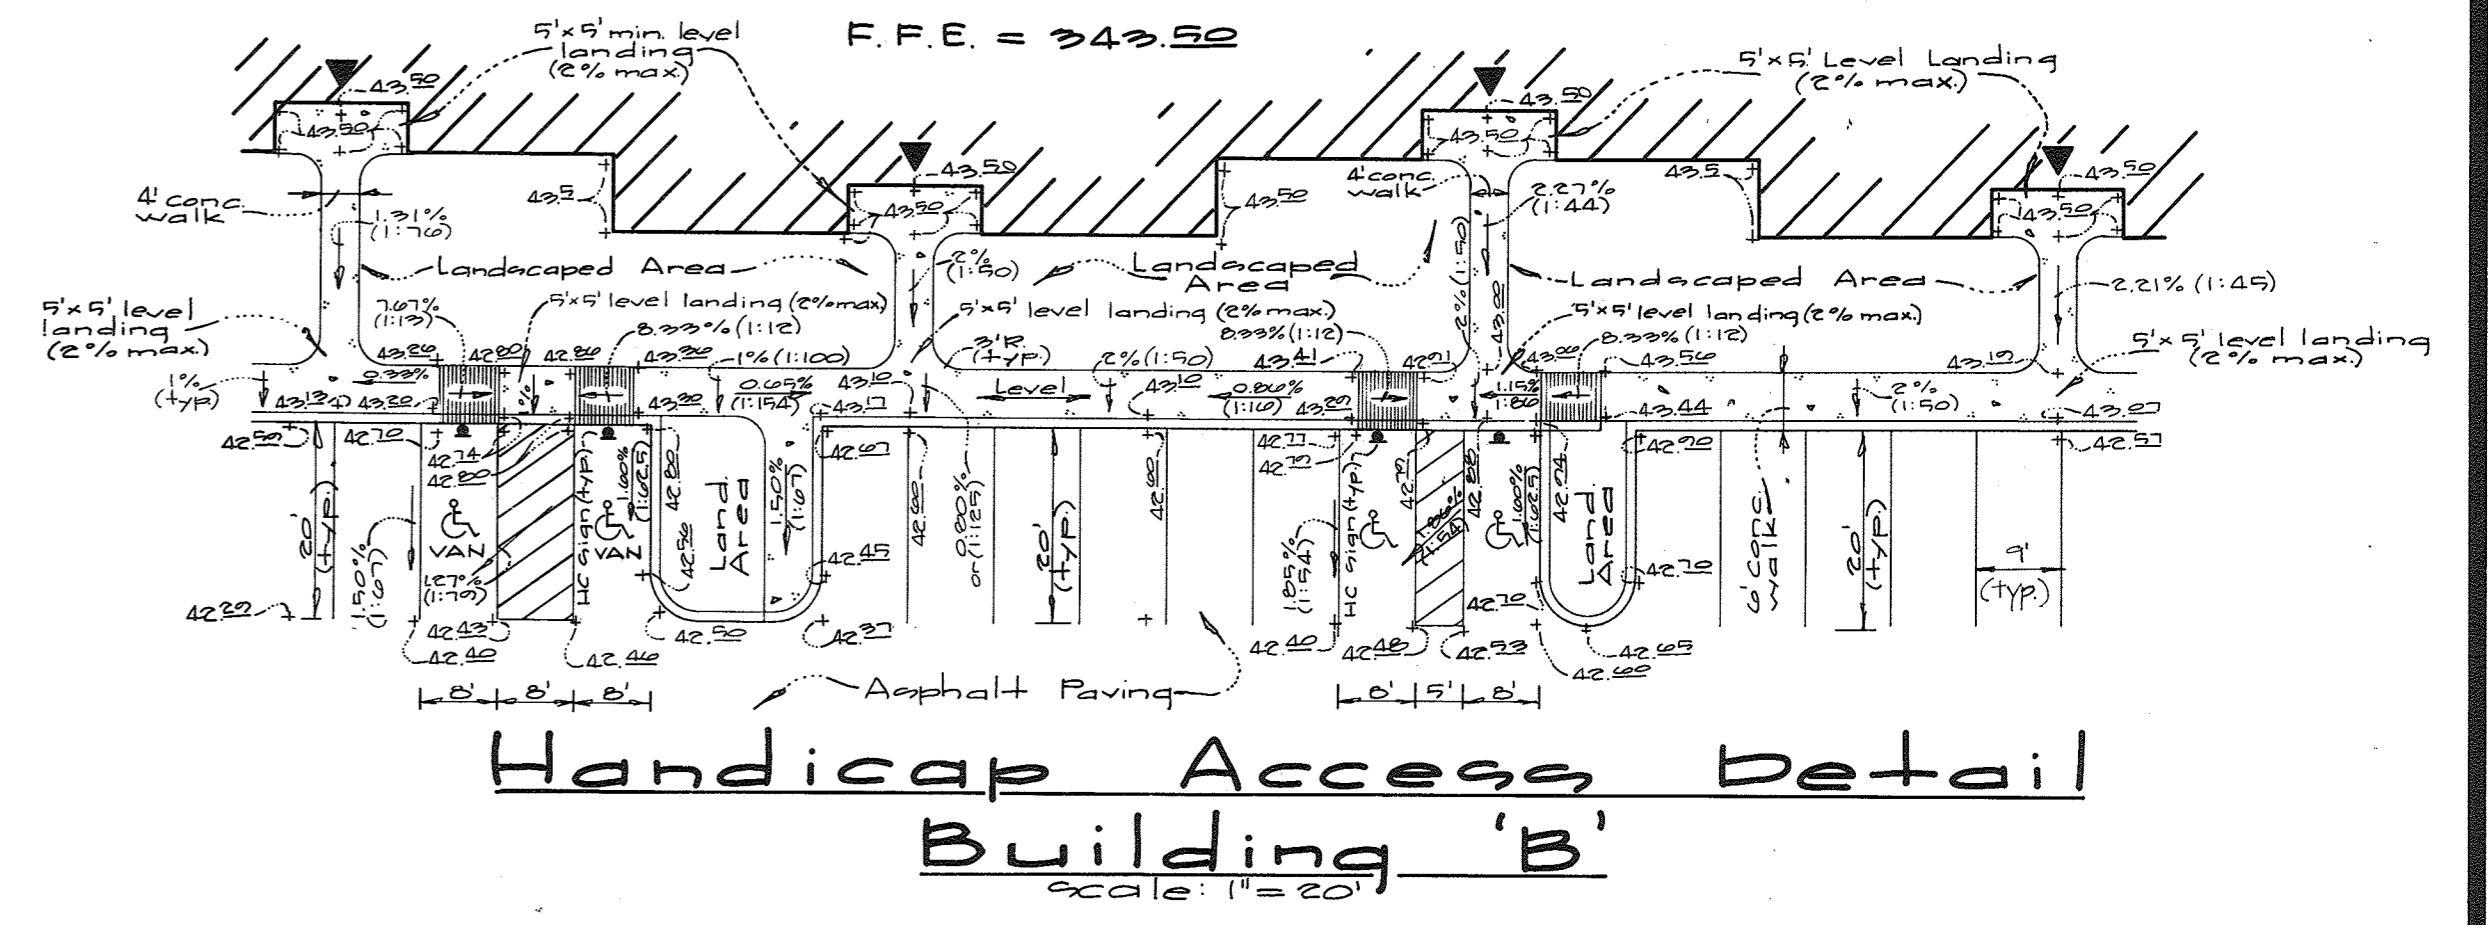 F.F.E. = 343.50
5'x5' min. level
landing
(2% max.)
5'x5' Level Landing
(2% max.)
43.50
43.50
43.50
43.50
43.50
43.50
43.50
43.50
4' conc.
walk
1.31%
(1:76)
43.5
43.50
4' conc.
walk
2.27%
(1:44)
43.5
Landscaped Area
2%
(1:50)
Landscaped
Area
2% (1:50)
43.00
Landscaped Area
2.21% (1:45)
5'x5' level
landing
(2% max.)
7.67%
(1:13)
5'x5' level landing (2% max)
8.33% (1:12)
5'x5' level landing (2% max.)
8.33% (1:12)
5'x5' level landing (2% max.)
8.33% (1:12)
5'x5' level landing
(2% max.)
43.26
42.80
42.86
43.36
1% (1:100)
3'R.
(typ.)
2% (1:50)
43.41
42.91
43.06
43.56
43.19
1%
(typ)
0.33%
1%
0.65%
(1:154)
43.10
Level
43.10
0.86%
(1:116)
1.15%
1:86
2%
(1:50)
43.13
43.20
43.30
43.17
43.29
43.44
43.07
42.59
42.70
42.74
42.80
42.67
42.77
42.79
42.90
42.57
20'
(typ.)
1.50%
(1:67)
VAN
HC sign (typ.)
VAN
1.60%
(1:62.5)
42.80
42.56
Land.
Area
1.50%
(1:67)
42.45
42.60
0.80%
or (1:125)
20'
(typ.)
42.60
1.85%
(1:54)
HC sign (typ.)
42.79
1.86%
(1:54)
42.88
1.60%
(1:62.5)
42.94
Land
Area
42.70
42.70
6' conc.
walk
20'
(typ.)
9'
(typ.)
1.27%
(1:79)
42.29
42.43
42.40
42.46
42.50
42.37
42.40
42.48
42.53
42.65
42.60
8'
8'
8'
Asphalt Paving
8'
5'
8'
Handicap Access Detail
Building 'B'
scale: 1"= 20'